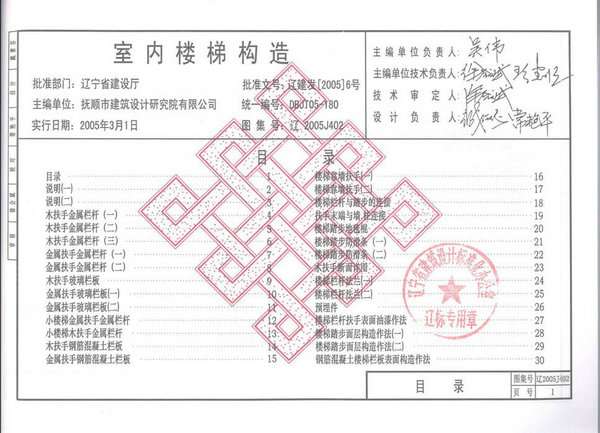 室内楼梯构造
批准部门：辽宁省建设厅 批准文号：辽建发[2005]6号
主编单位：抚顺市建筑设计研究院有限公司 统一编号：DBJT05-180
实行日期：2005年3月1日 图集号：辽 2005J402
主编单位负责人：吴伟
主编单位技术负责人：
技术审定人：
设计负责人：
目 录
目录 1
说明(一) 2
说明(二) 3
木扶手金属栏杆（一） 4
木扶手金属栏杆（二） 5
木扶手金属栏杆（三） 6
金属扶手金属栏杆（一） 7
金属扶手金属栏杆（二） 8
木扶手玻璃栏板 9
金属扶手玻璃栏板(一) 10
金属扶手玻璃栏板(二) 11
小楼梯金属扶手金属栏杆 12
小楼梯木扶手金属栏杆 13
木扶手钢筋混凝土栏板 14
金属扶手钢筋混凝土栏板 15
楼梯靠墙扶手(一) 16
楼梯靠墙扶手(二) 17
楼梯栏杆与踏步的连接 18
扶手末端与墙、柱连接 19
楼梯踏步地毯棍 20
楼梯踏步防滑条（一） 21
楼梯踏步防滑条（二） 22
木扶手断面详图 23
楼梯栏杆法兰(一) 24
楼梯栏杆法兰(二) 25
预埋件 26
楼梯栏杆扶手表面油漆作法 27
楼梯踏步面层构造作法(一) 28
楼梯踏步面层构造作法(二) 29
钢筋混凝土楼梯栏板表面构造作法 30
辽宁省建筑设计标准化办公室
辽标专用章
目 录
图集号 辽2005J402
页 号 1